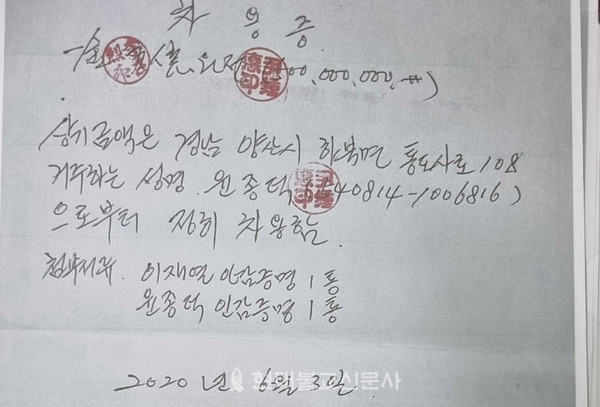 차용증
一金
상기금액은 경남 양산시 하북면 통도사로 108
거주하는 성명 윤종덕 540814-1006816)
으로부터 정히 차용함.
첨부서류. 이재열 인감증명 1통
윤종덕 인감증명 1통
2020년 6월 3일
현대불교신문사